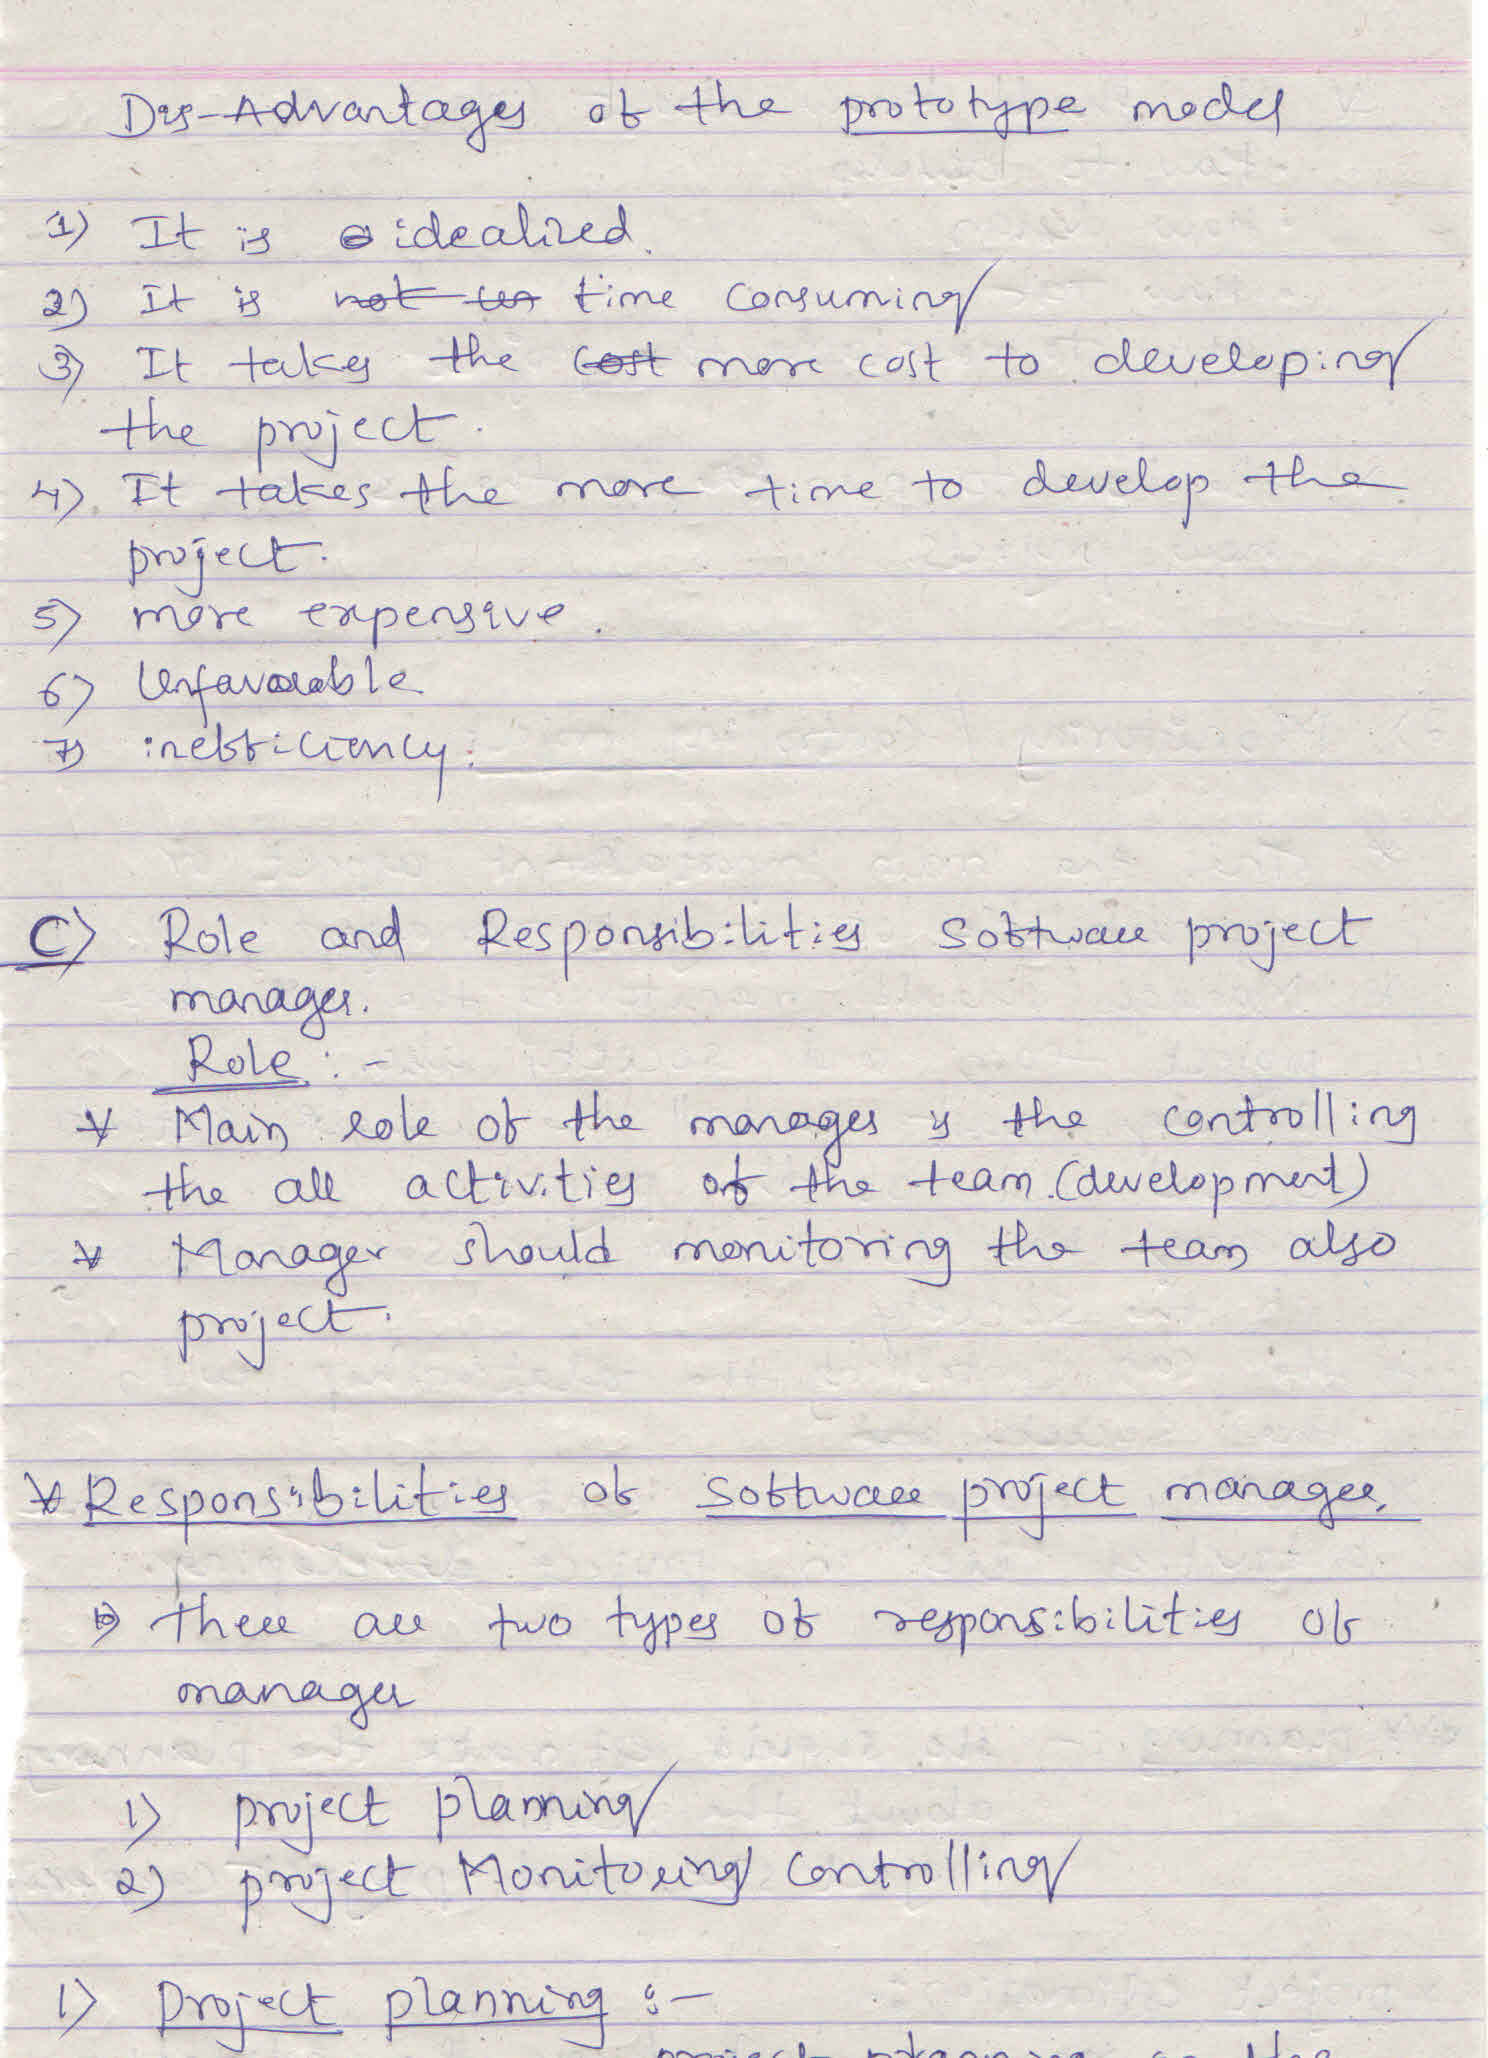 Dis-Advantages of the prototype model
1) It is idealized.
2) It is not time consuming
3) It takes the cost more cost to developing
the project.
4) It takes the more time to develop the
project.
5) more expensive.
6) Unfavourable
7) inefficiency.
C) Role and Responsibilities Software project
manager.
Role :-
* Main role of the manager is the controlling
the all activities of the team (development)
* Manager should monitoring the team also
project.
* Responsibilities of Software project manager.
there are two types of responsibilities of
manager
1) project planning
2) project Monitoring controlling
1) Project planning :-
project planning is the